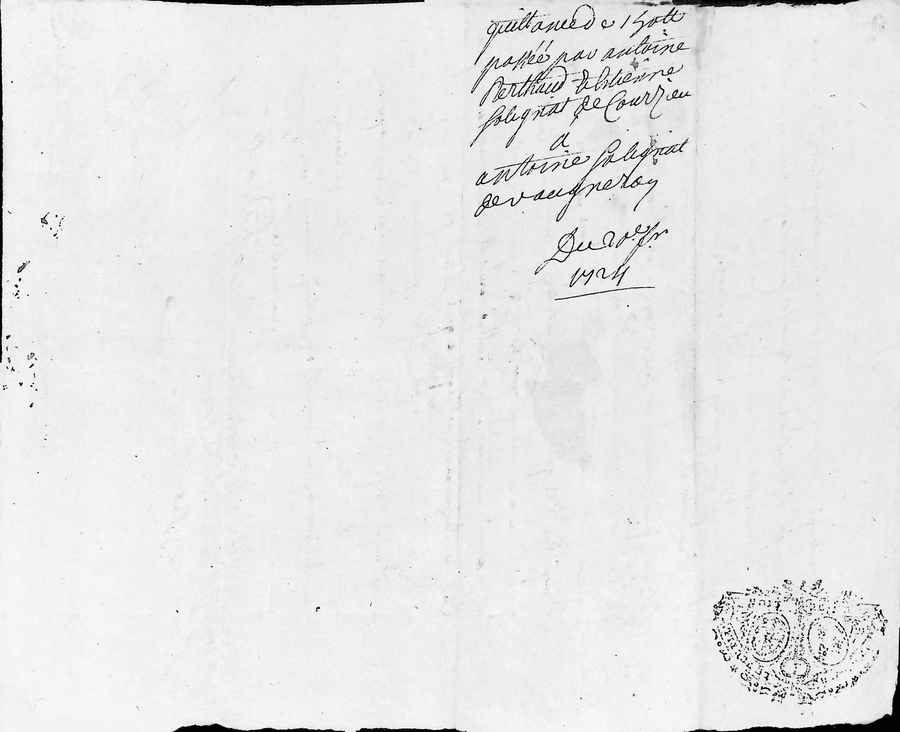 quittance de 150 tt
passéé par antoine
Berthaud & Etienne
Solignat de Courzieu
a
antoine Solignat
de vaugneray
Du 20e
1724